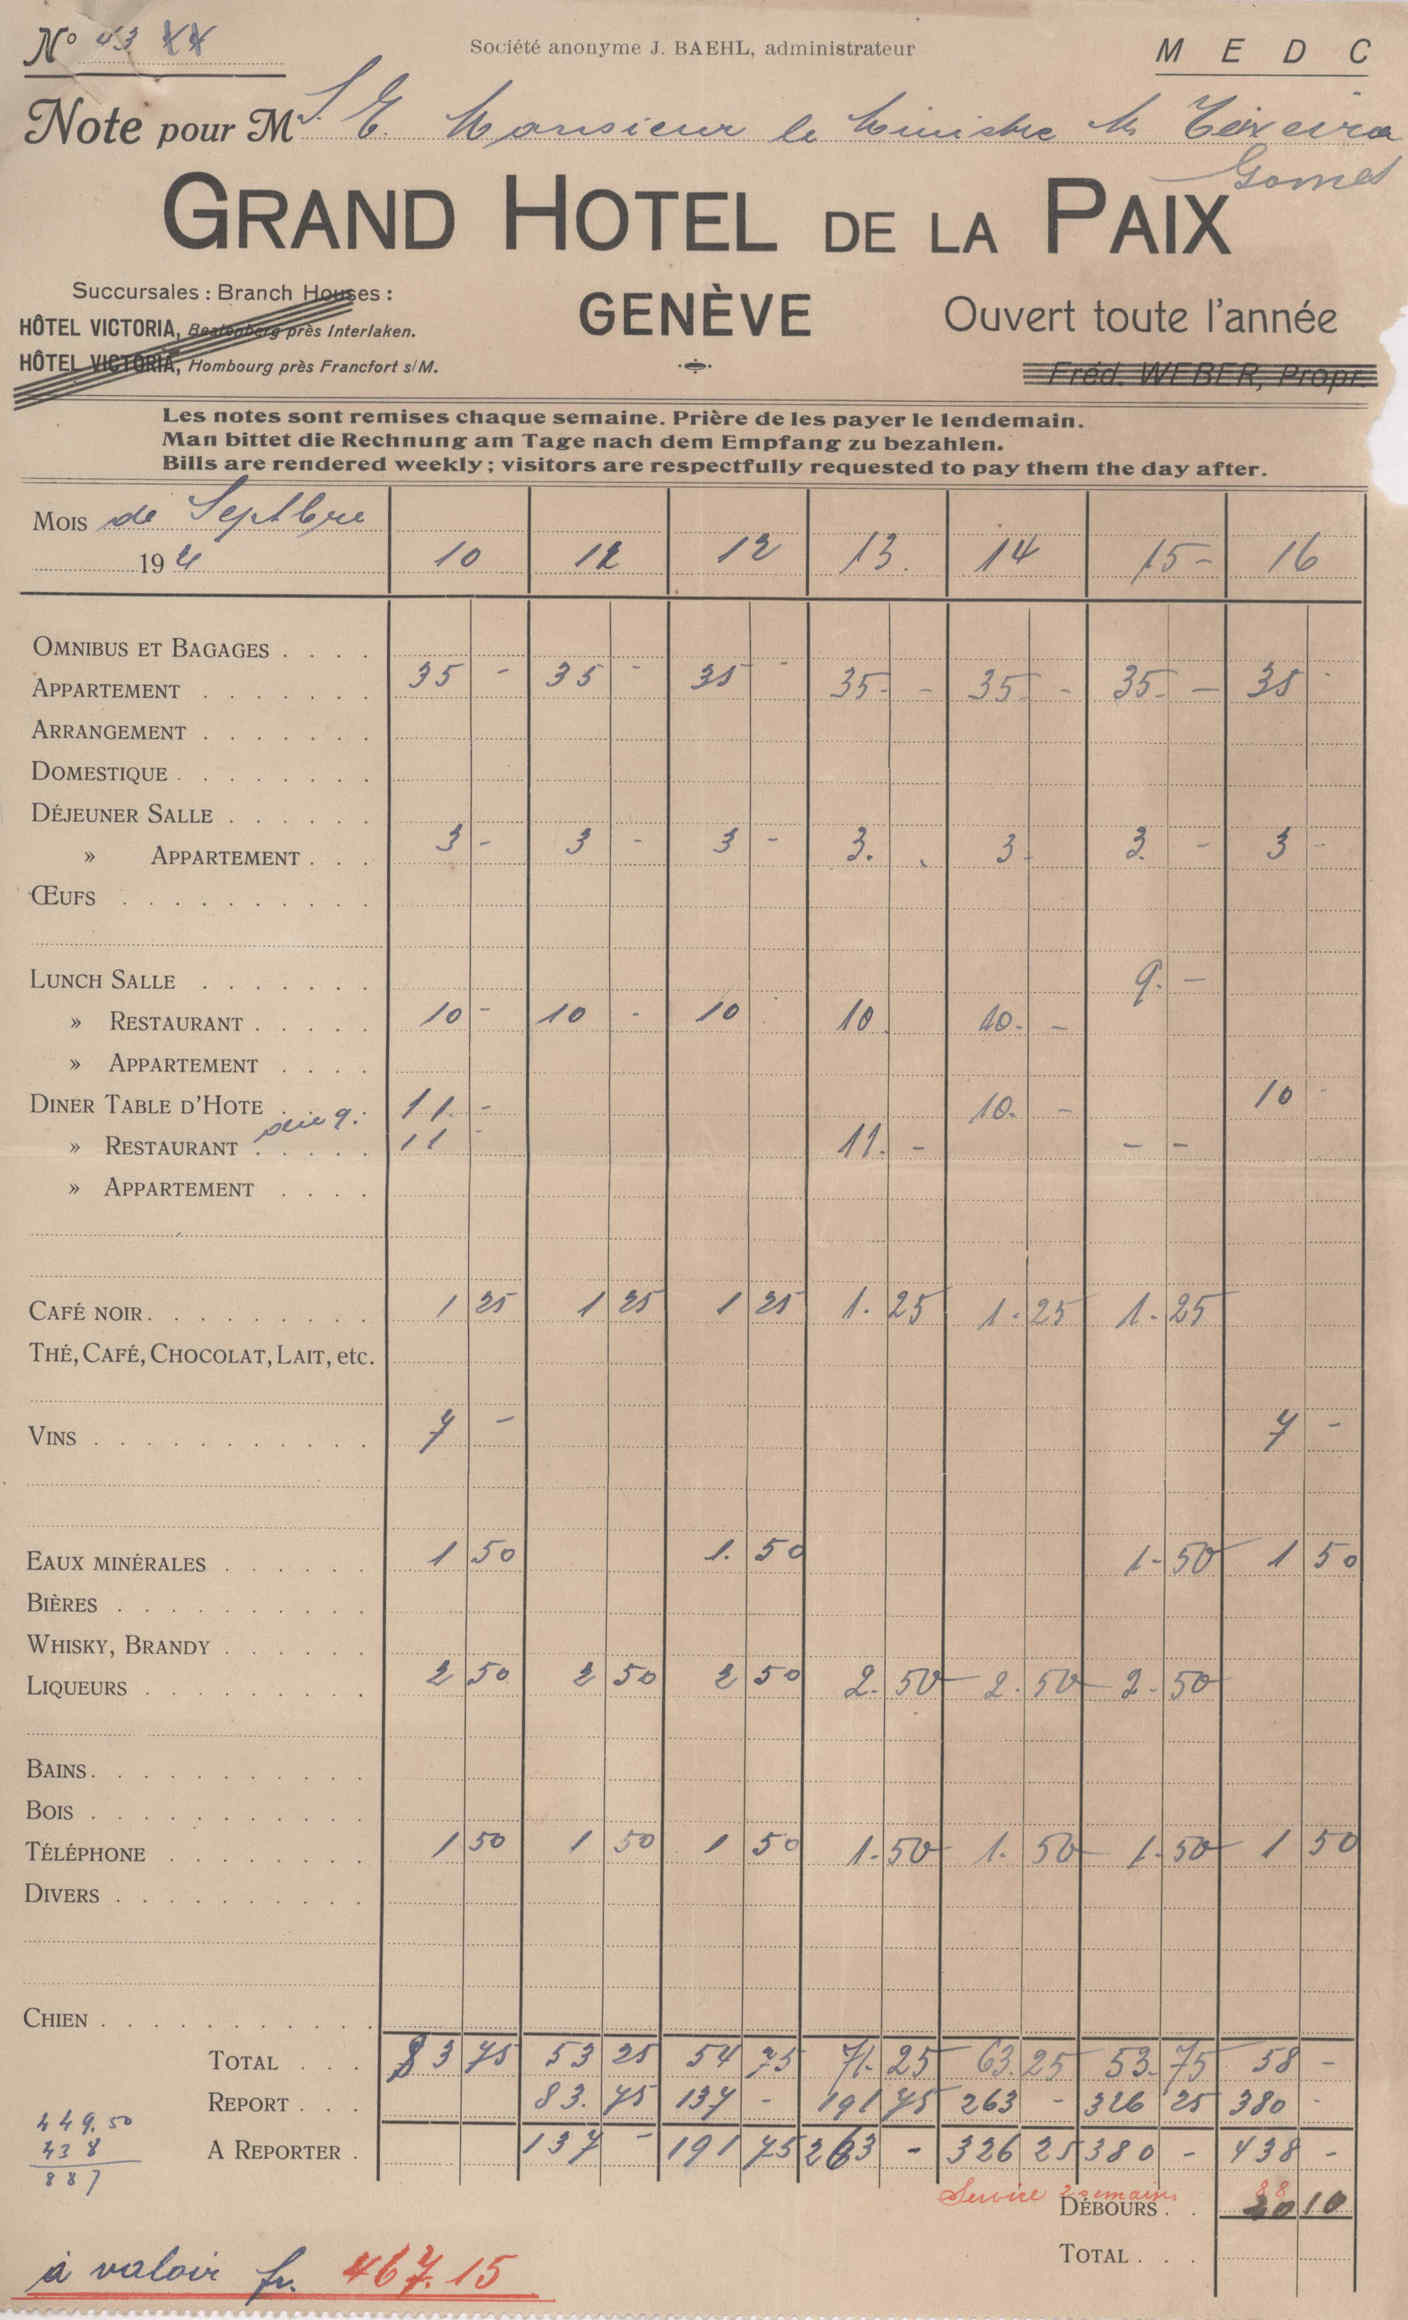 No 43
Société anonyme J. BAEHL, administrateur
M E D C
Note pour M S. E. Monsieur le Ministre M. Teixeira
Gomes
GRAND HOTEL DE LA PAIX
Succursales : Branch Houses :
HÔTEL VICTORIA, Beatenberg près Interlaken.
HÔTEL VICTORIA, Hombourg près Francfort s/M.
GENÈVE
Ouvert toute l'année
Fréd. WEBER, Propr.
Les notes sont remises chaque semaine. Prière de les payer le lendemain.
Man bittet die Rechnung am Tage nach dem Empfang zu bezahlen.
Bills are rendered weekly ; visitors are respectfully requested to pay them the day after.
MOIS de Septbre
192 10 12 13. 14 15 - 16
OMNIBUS ET BAGAGES . . . .
APPARTEMENT . . . . . . . 35 - 35 - 35 - 35 - - 35 - 35 - - 35 -
ARRANGEMENT . . . . . . .
DOMESTIQUE . . . . . . . .
DÉJEUNER SALLE . . . . . .
» APPARTEMENT . . . 3 - 3 - 3 - 3. 3 - 3 - 3 -
ŒUFS . . . . . . . . . .
LUNCH SALLE . . . . . . . 9. -
» RESTAURANT . . . . . 10 - 10 - 10 10 10. -
» APPARTEMENT . . . .
DINER TABLE D'HOTE . . . . 11. - 10. - 10 -
» RESTAURANT . . . . . 9. 11 - 11. - - -
» APPARTEMENT . . . .
CAFÉ NOIR . . . . . . . . . 1 25 1 25 1 25 1. 25 1. 25 1. 25
THÉ, CAFÉ, CHOCOLAT, LAIT, etc.
VINS . . . . . . . . . . . 7 - 7 -
EAUX MINÉRALES . . . . . . 1 50 1. 50 1 - 50 1 50
BIÈRES . . . . . . . . . .
WHISKY, BRANDY . . . . . .
LIQUEURS . . . . . . . . . 2 50 2 50 2 50 2. 50 2. 50 2. 50
BAINS . . . . . . . . . . .
BOIS . . . . . . . . . . .
TÉLÉPHONE . . . . . . . . 1 50 1 50 1 50 1. 50 1. 50 1. 50 1 50
DIVERS . . . . . . . . . .
CHIEN . . . . . . . . . . .
TOTAL . . . 83 75 53 25 54 75 71. 25 63. 25 53. 75 58 -
REPORT . . . 83. 75 137 - 191 75 263 - 326 25 380 -
A REPORTER . 137 - 191 75 263 - 326 25 380 - 438 -
449.50
438
887
Service 2 semaines 88
DÉBOURS . . 10
TOTAL . . .
à valoir fr. 467.15